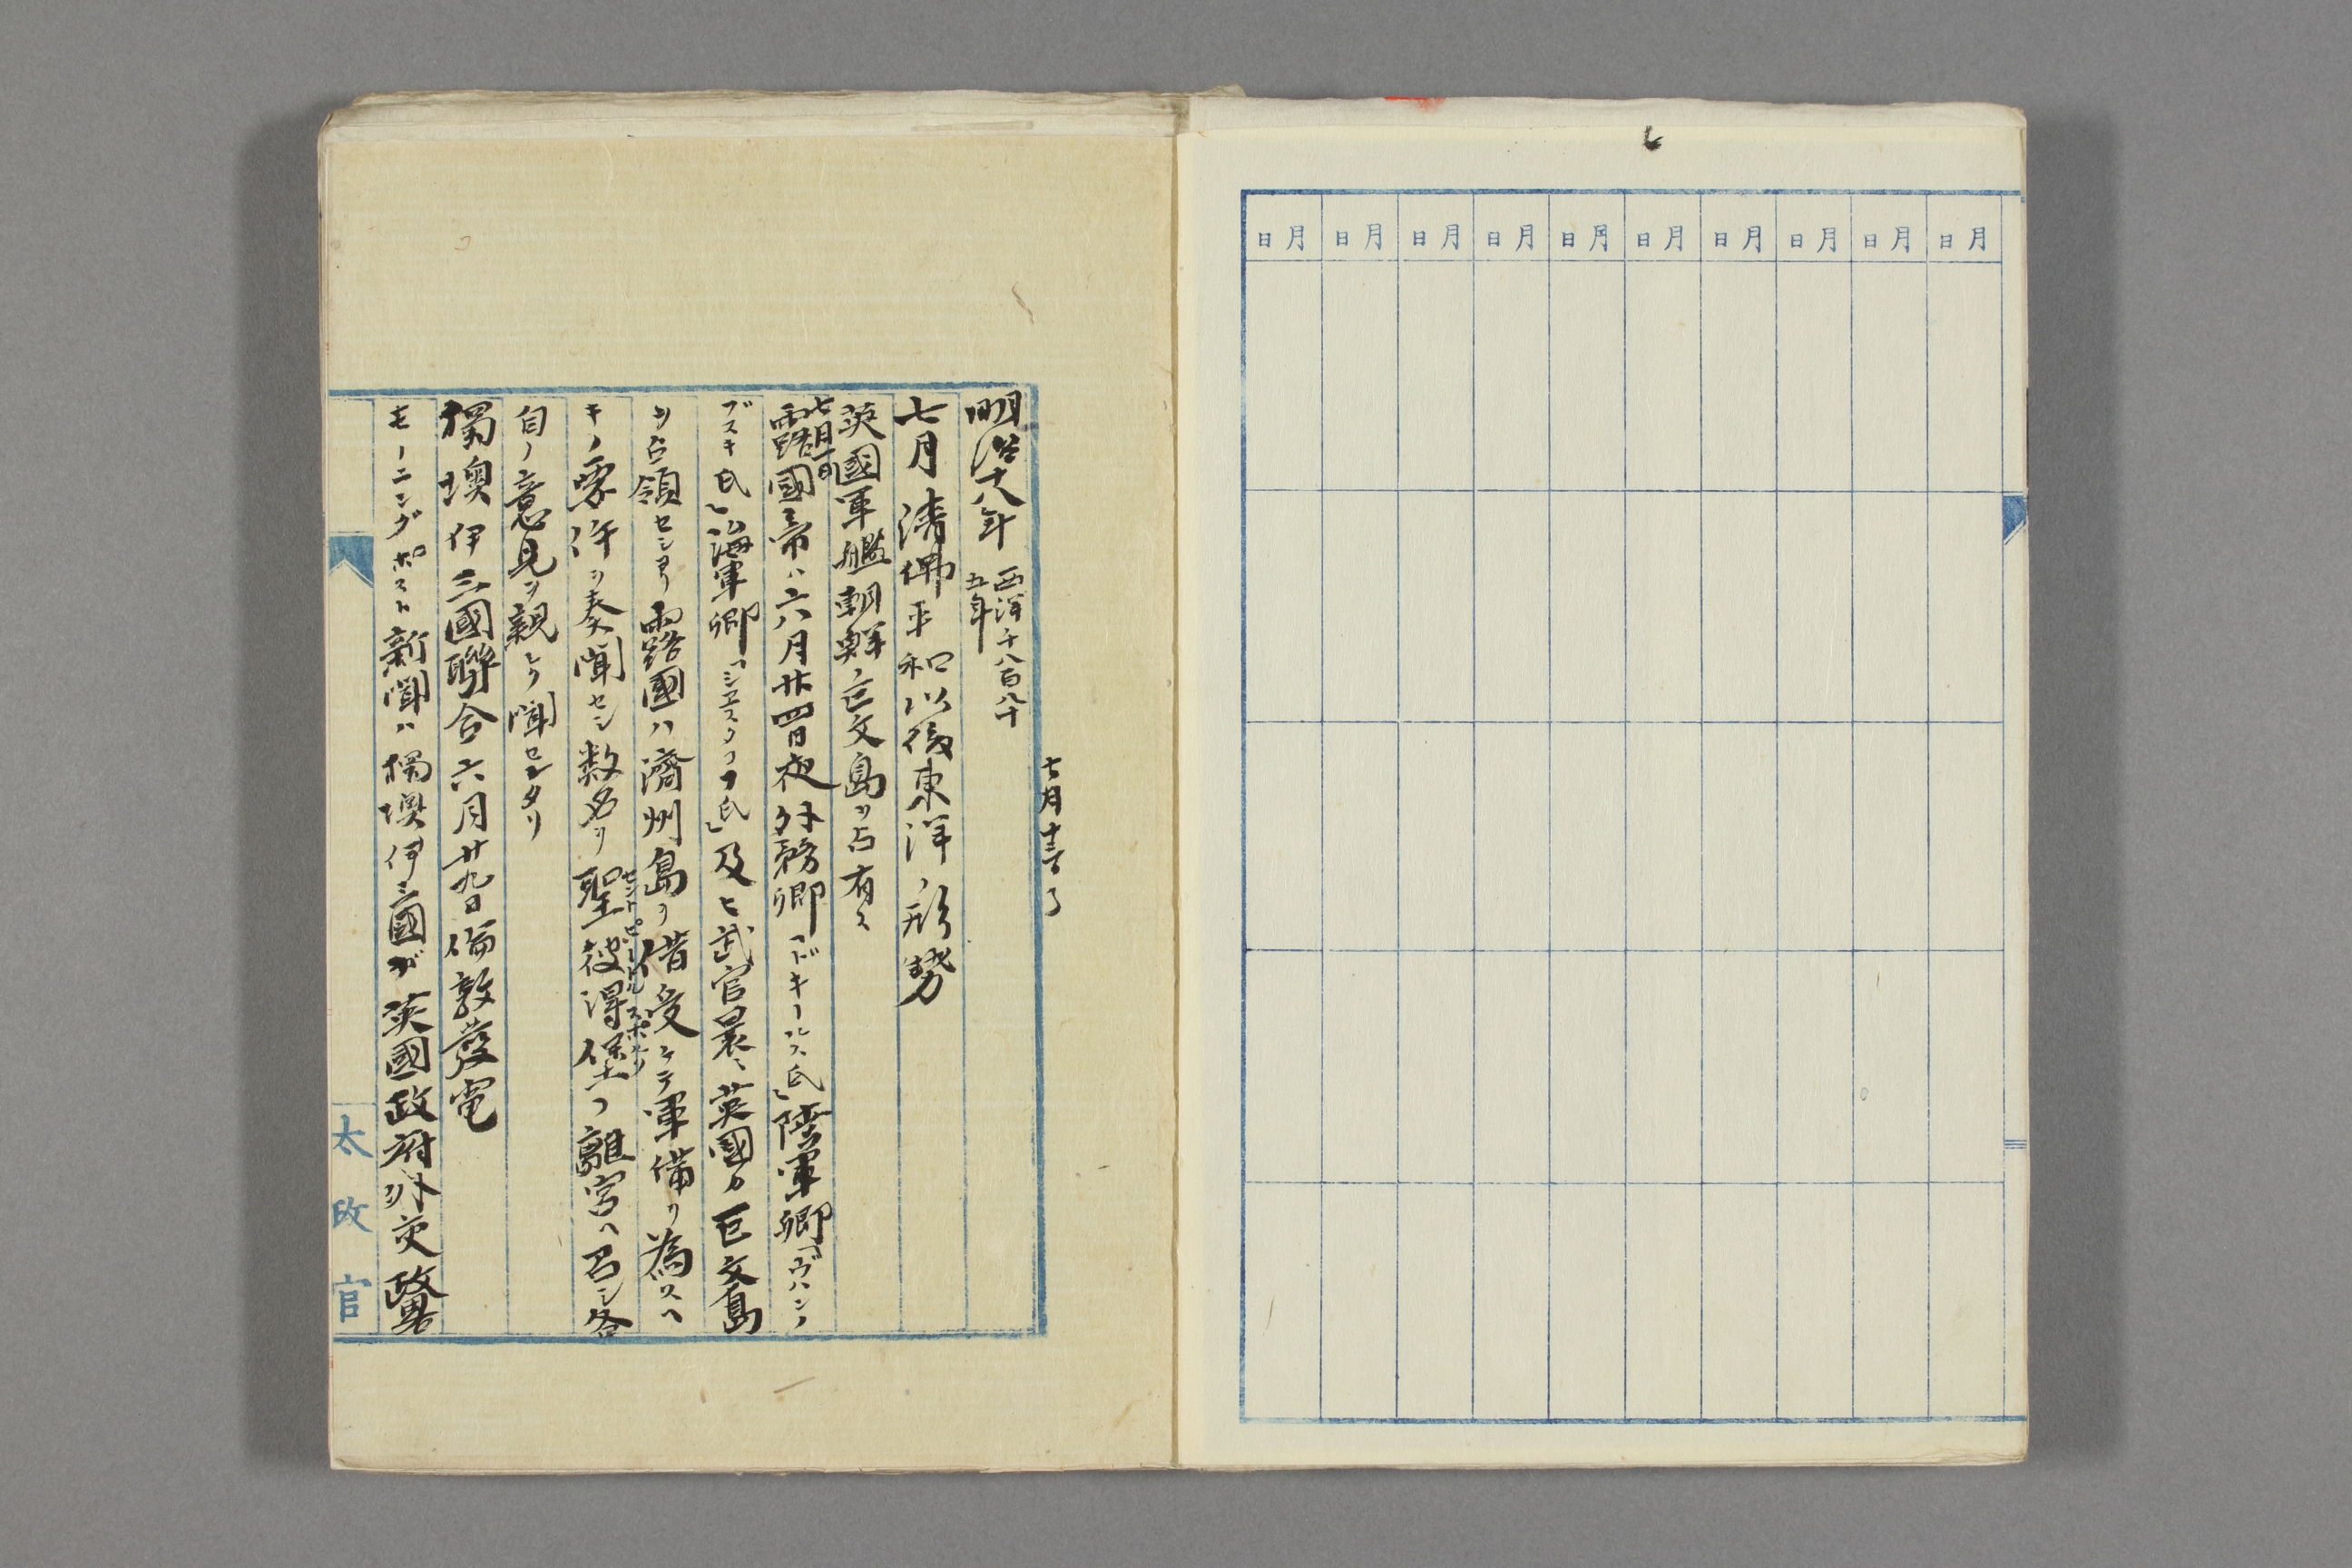 月日 月日 月日 月日 月日 月日 月日 月日 月日 月日
七月十三日了
明治十八年 西洋千八百八十五年
七月清佛平和以後東洋ノ形勢
英國軍艦朝鮮ノ巨文島ヲ占有ス
七月一日
露國帝ハ六月廿四日夜外務卿「ドキールス氏」陸軍卿「ヴハンノ
ブスキ氏」海軍卿「シエスタコフ氏」及ヒ武官曩ニ英國カ巨文島
ヲ占領セシヨリ露國ハ濟州島ヲ借受ケテ軍備ヲ為スヘ
キノ要件ヲ奏聞セシ数名ヲ聖彼得堡ノ離宮ヘ召シ各
セントピートルスボルク
自ノ意見ヲ親シク聞セシタリ
獨墺伊三國聯合六月廿九日倫敦發電
モーニングポスト新聞ハ獨墺伊三國ガ英國政府外交政畧
太政官